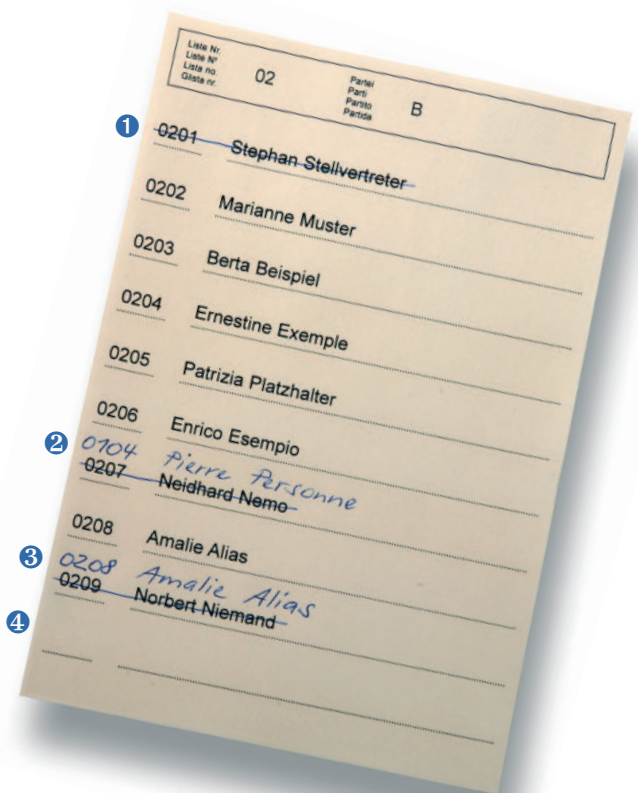 Liste Nr.
Liste N°
Lista no.
Glista nr.
02
Partei
Parti
Partito
Partida
B
1
0201 Stephan Stellvertreter
0202 Marianne Muster
0203 Berta Beispiel
0204 Ernestine Exemple
0205 Patrizia Platzhalter
0206 Enrico Esempio
2
0104 Pierre Personne
0207 Neidhard Nemo
0208 Amalie Alias
3
0208 Amalie Alias
0209 Norbert Niemand
4